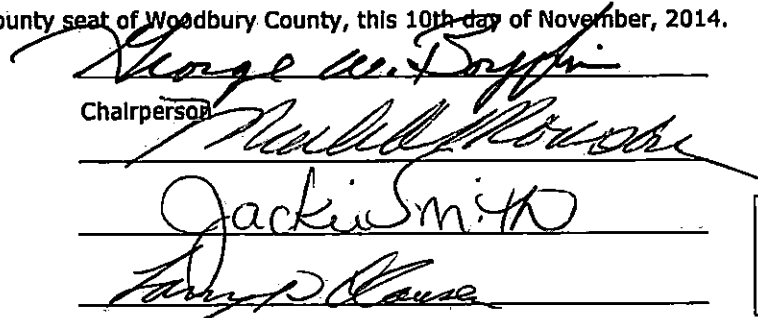 ounty seat of Woodbury County, this 10th day of November, 2014.
George W. Boykin
Chairperson
Jackie Smith
Larry D Clausen